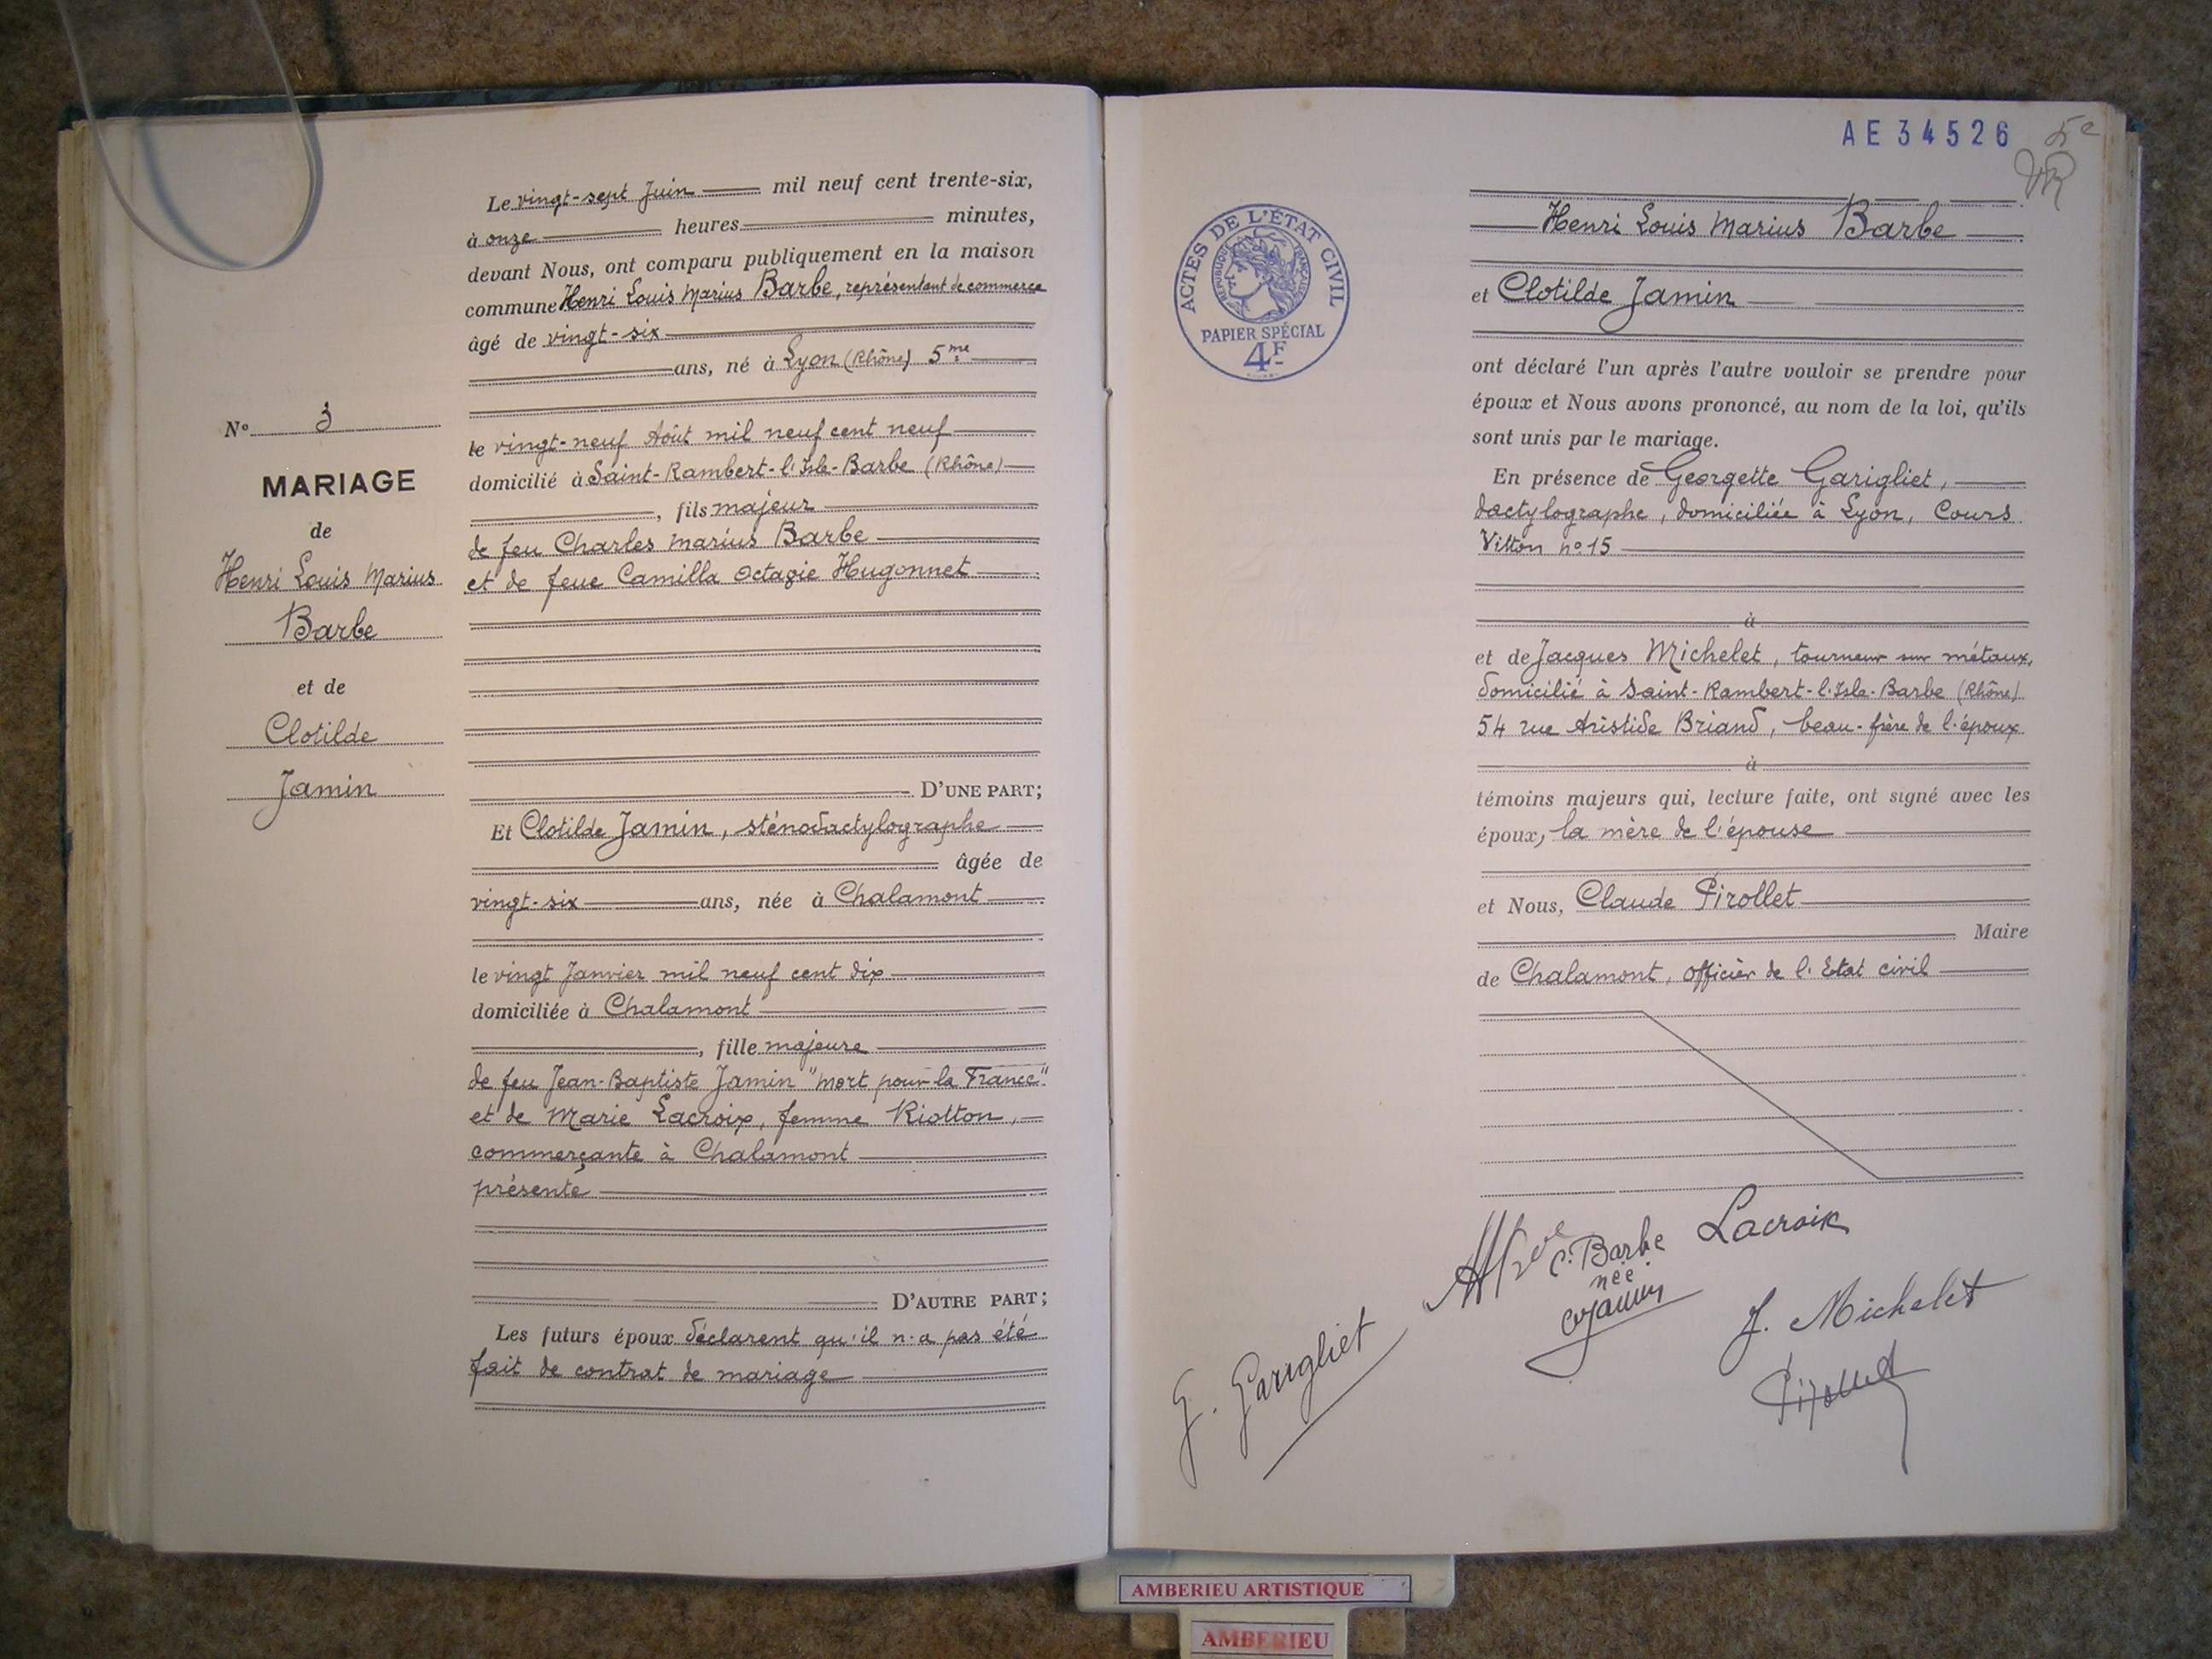 N° 3
MARIAGE
de
Henri Louis Marius
Barbe
et de
Clotilde
Jamin
Le vingt-sept Juin mil neuf cent trente-six,
à onze heures minutes,
devant Nous, ont comparu publiquement en la maison
commune Henri Louis Marius Barbe, représentant de commerce
âgé de vingt-six
ans, né à Lyon (Rhône) 5me
le vingt-neuf Août mil neuf cent neuf
domicilié à Saint-Rambert-l'Isle-Barbe (Rhône)
, fils majeur
de feu Charles Marius Barbe
et de feue Camilla Octavie Hugonnet
D'UNE PART;
Et Clotilde Jamin, sténodactylographe
âgée de
vingt-six ans, née à Chalamont
le vingt Janvier mil neuf cent dix
domiciliée à Chalamont
, fille majeure
de feu Jean-Baptiste Jamin "mort pour la France"
et de Marie Lacroix, femme Riotton,
commerçante à Chalamont
présente
D'AUTRE PART;
Les futurs époux déclarent qu'il n'a pas été
fait de contrat de mariage
AE 34526
ACTES DE L'ÉTAT CIVIL
RÉPUBLIQUE FRANÇAISE
PAPIER SPÉCIAL
4F
Henri Louis Marius Barbe
et Clotilde Jamin
ont déclaré l'un après l'autre vouloir se prendre pour
époux et Nous avons prononcé, au nom de la loi, qu'ils
sont unis par le mariage.
En présence de Georgette Garigliet,
dactylographe, domiciliée à Lyon, Cours
Vitton n° 15
à
et de Jacques Michelet, tourneur sur métaux,
domicilié à Saint-Rambert-l'Isle-Barbe (Rhône)
54 rue Aristide Briand, beau-frère de l'époux
à
témoins majeurs qui, lecture faite, ont signé avec les
époux, la mère de l'épouse
et Nous, Claude Pirollet
Maire
de Chalamont, officier de l'Etat civil
C. Barbe
née
Lacroix
G. Garigliet
J. Michelet
Pirollet
AMBERIEU ARTISTIQUE
AMBERIEU